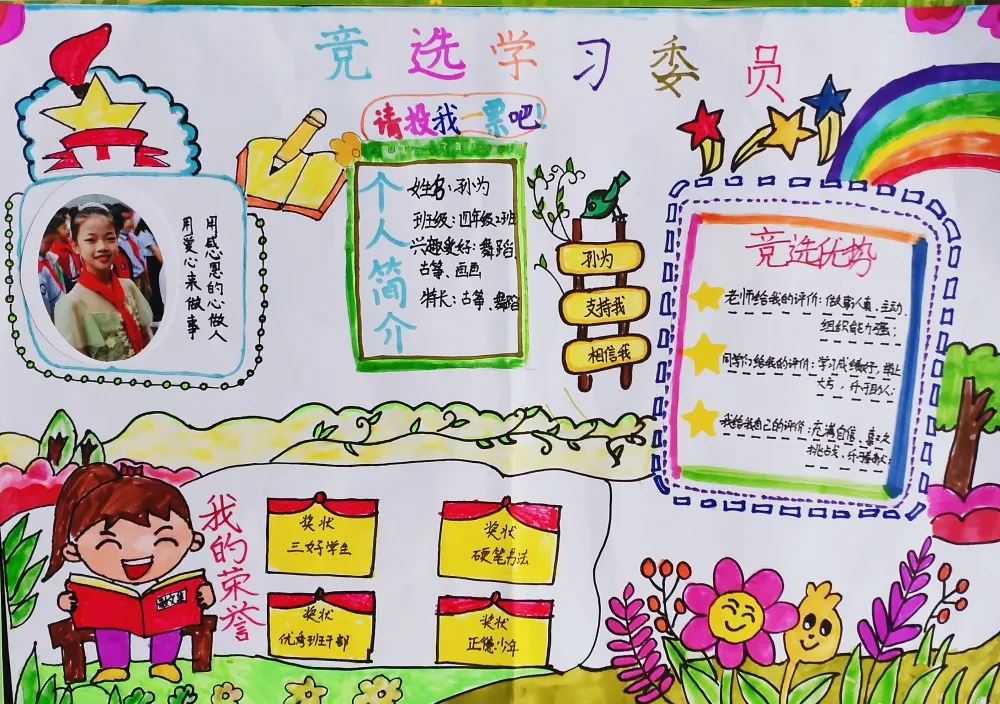 竞选学习委员
请投我一票吧!
用感恩的心做人
用爱心来做事
个人简介
姓名:孙为
班级:四年级2班
兴趣爱好:舞蹈
古筝、画画
特长:古筝、舞蹈
孙为
支持我
相信我
竞选优势
老师给我的评价:做事认真、主动,
组织能力强;
同学们给我的评价:学习成绩好,举止
大方,乐于助人;
我给我自己的评价:充满自信、喜欢
挑战,乐于奉献;
我的荣誉
奖状
三好学生
奖状
硬笔书法
奖状
优秀班干部
奖状
正德少年